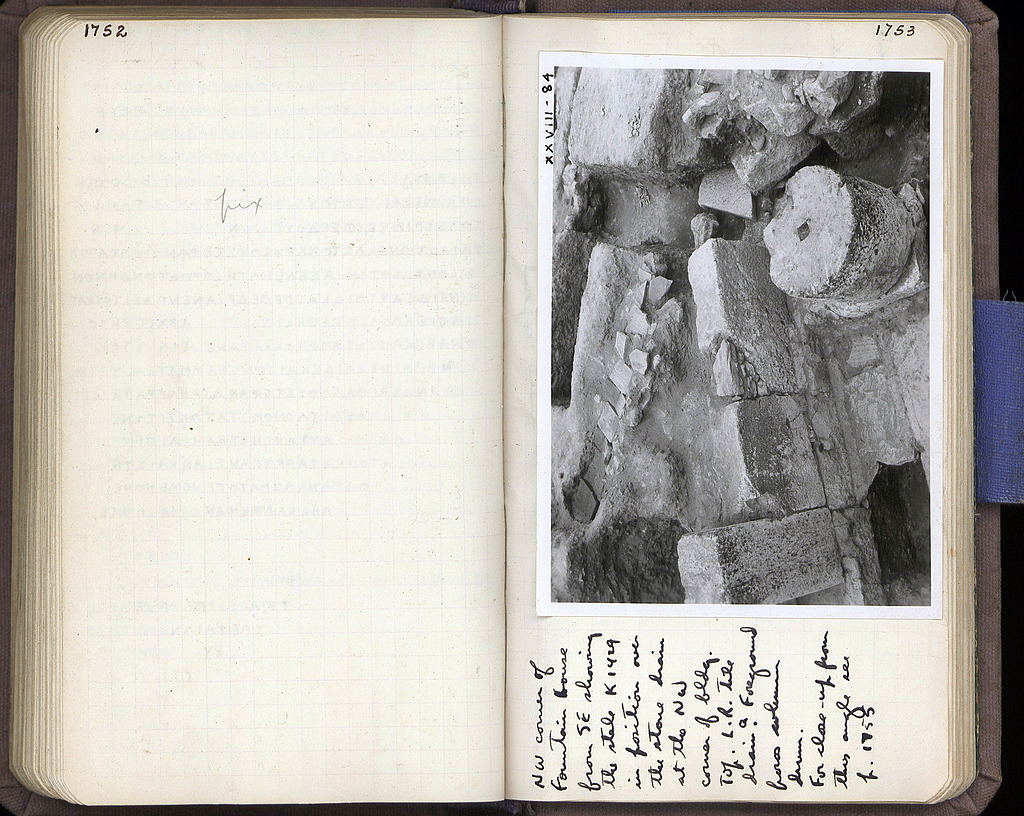 1752
pix
1753
XXVIII - 84
NW corner of
Fountain House
from SE showing
the stele K 1429
in position over
the stone drain
at the NW
corner of bldg.
Top: L.R. tile
drain. Foreground
poros column
drum.
For close-up from
this angle see
p. 1755